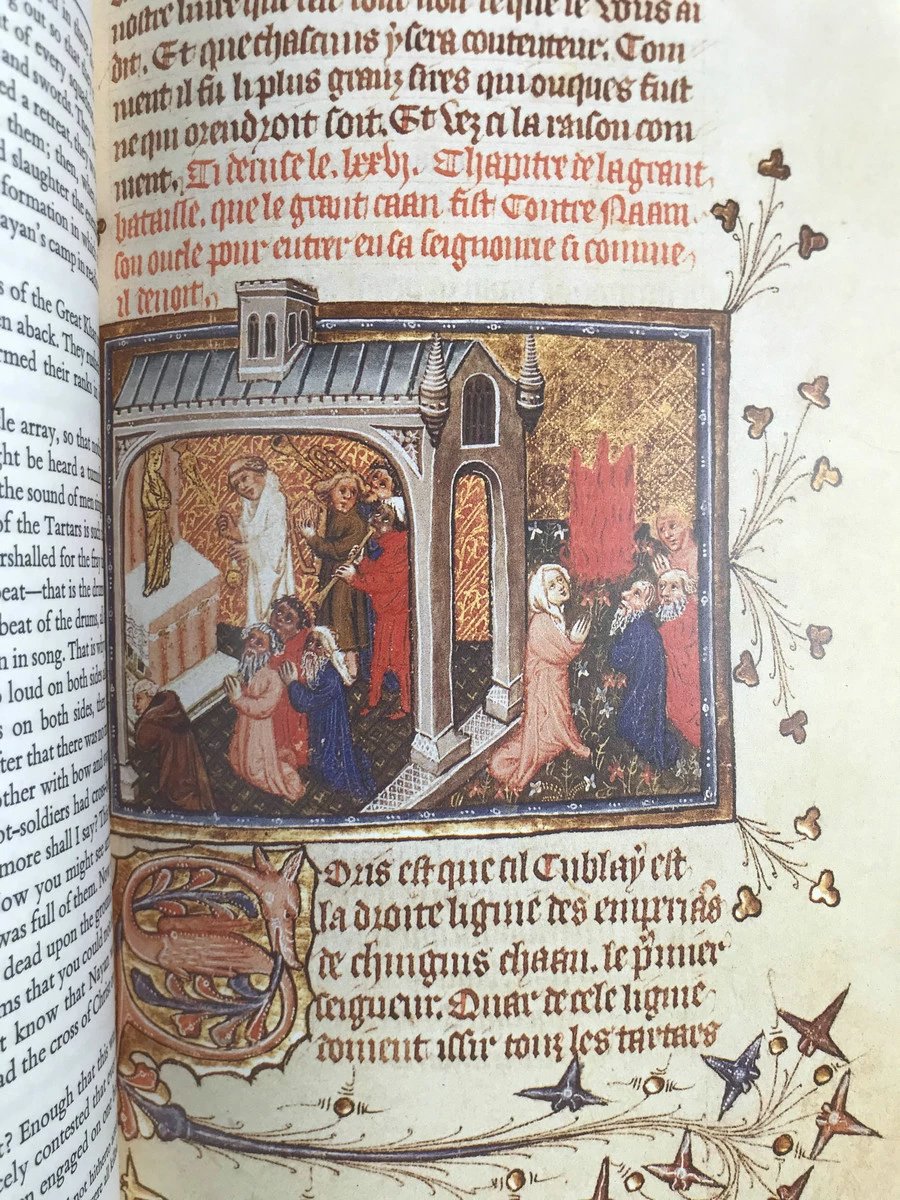 out so that
of every squadron
and swords. They
ed a retreat, they
them; then, when
slaughter the
formation in which
ayan's camp in
s of the Great Khan
en aback. They
rmed their ranks
le array, so that
ght be heard a
the sound of men
of the Tartars is such
rshalled for the fray
beat—that is the drums
beat of the drums,
n in song. That is why
o loud on both sides
s on both sides, then
fter that there was no
other with bow and
ot-soldiers had
more shall I say?
ow you might see
was full of them.
dead upon the ground
ms that you could
t know that Nayan
ad the cross of Christ
t? Enough that this
cely contested that
n engaged on
nostre liure que
dit. Et que chascuns y sera contenteur. Com
ment il fu li plus granz sires qui onques fust
ne qui orendroit soit. Et vez ci la raison com
ment. Ci deuise le .lxxvj. Chapitre de la grant
bataille. que le grant caan fist Contre Naam
son oncle pour entrer en sa seignourie si comme
il deuoit.
Oris est que cil Cublay est
la droite lignie des
de chinguis chaan. le pmier
seigneur. Quar de cele lignie
doiuent issir touz les tartars